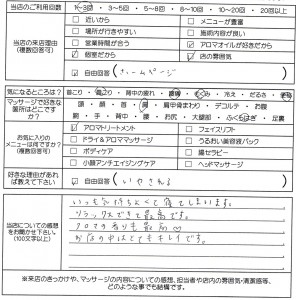 当店のご利用回数 1～3回 ・ 3～5回 ・ 5～8回 ・ 8～10回 ・ 10～20回 ・ 20回以上
当店の来店理由（複数回答可）
近いから メニューが豊富
場所が行きやすい 施術内容が良い
営業時間が合う アロマオイルが好きだから
個室だから 店の雰囲気
自由回答（ ホームページ ）
気になるところは？ 首こり ・ 肩こり ・ 背中の疲れ ・ 腰痛 ・ むくみ ・ 冷え ・ だるさ ・ 便秘
マッサージで好きな箇所はどこですか？
頭 ・ 顔 ・ 首 ・ 肩 ・ 肩甲骨まわり ・ デコルテ ・ お腹
腕 ・ 手 ・ 背中 ・ 腰 ・ お尻 ・ 大腿部 ・ ふくらはぎ ・ 足裏
お気に入りのメニューは何ですか？（複数回答可）
アロマトリートメント フェイスリフト
ドライ＆アロママッサージ うるおい美容液パック
ボディケア 腸セラピー
小顔アンチエイジングケア ヘッドマッサージ
好きな理由があれば教えて下さい 自由回答（ いやされる ）
当店についての感想をお聞かせ下さい。（100文字以上）
いつも気持ちよくて寝てしまいます。
リラックスできて最高です。
アロマの香りも最高♡
お店の中はとてもキレイです。
※来店のきっかけや、マッサージの内容についての感想、担当者や店内の雰囲気・清潔感等、どのような事でも結構です。